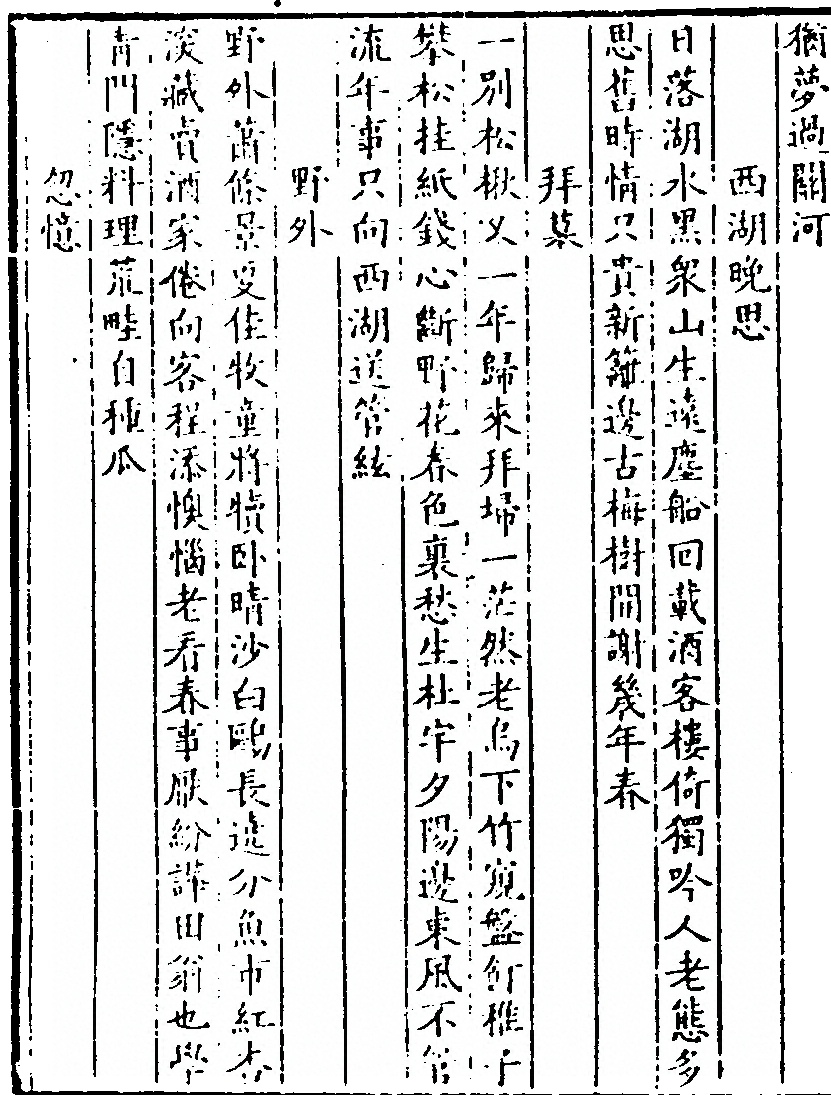 猶夢過關河
西湖晚思
日落湖水黑衆山生遠塵船回載酒客樓倚獨吟人老態多
思舊時情只貴新籬邊古梅樹開謝幾年春
拜墓
一别松楸又一年歸來拜埽一茫然老烏下竹窺盤飣稚子
攀松挂紙錢心斷野花春色裏愁生杜宇夕陽邊東風不管
流年事只向西湖送管絃
野外
野外蕭條景更佳牧童將犢卧晴沙白鷗長遶分魚市紅杏
深藏賣酒家倦向客程添懊惱老看春事厭紛譁田翁也學
青門隱料理荒畦自種瓜
忽憶